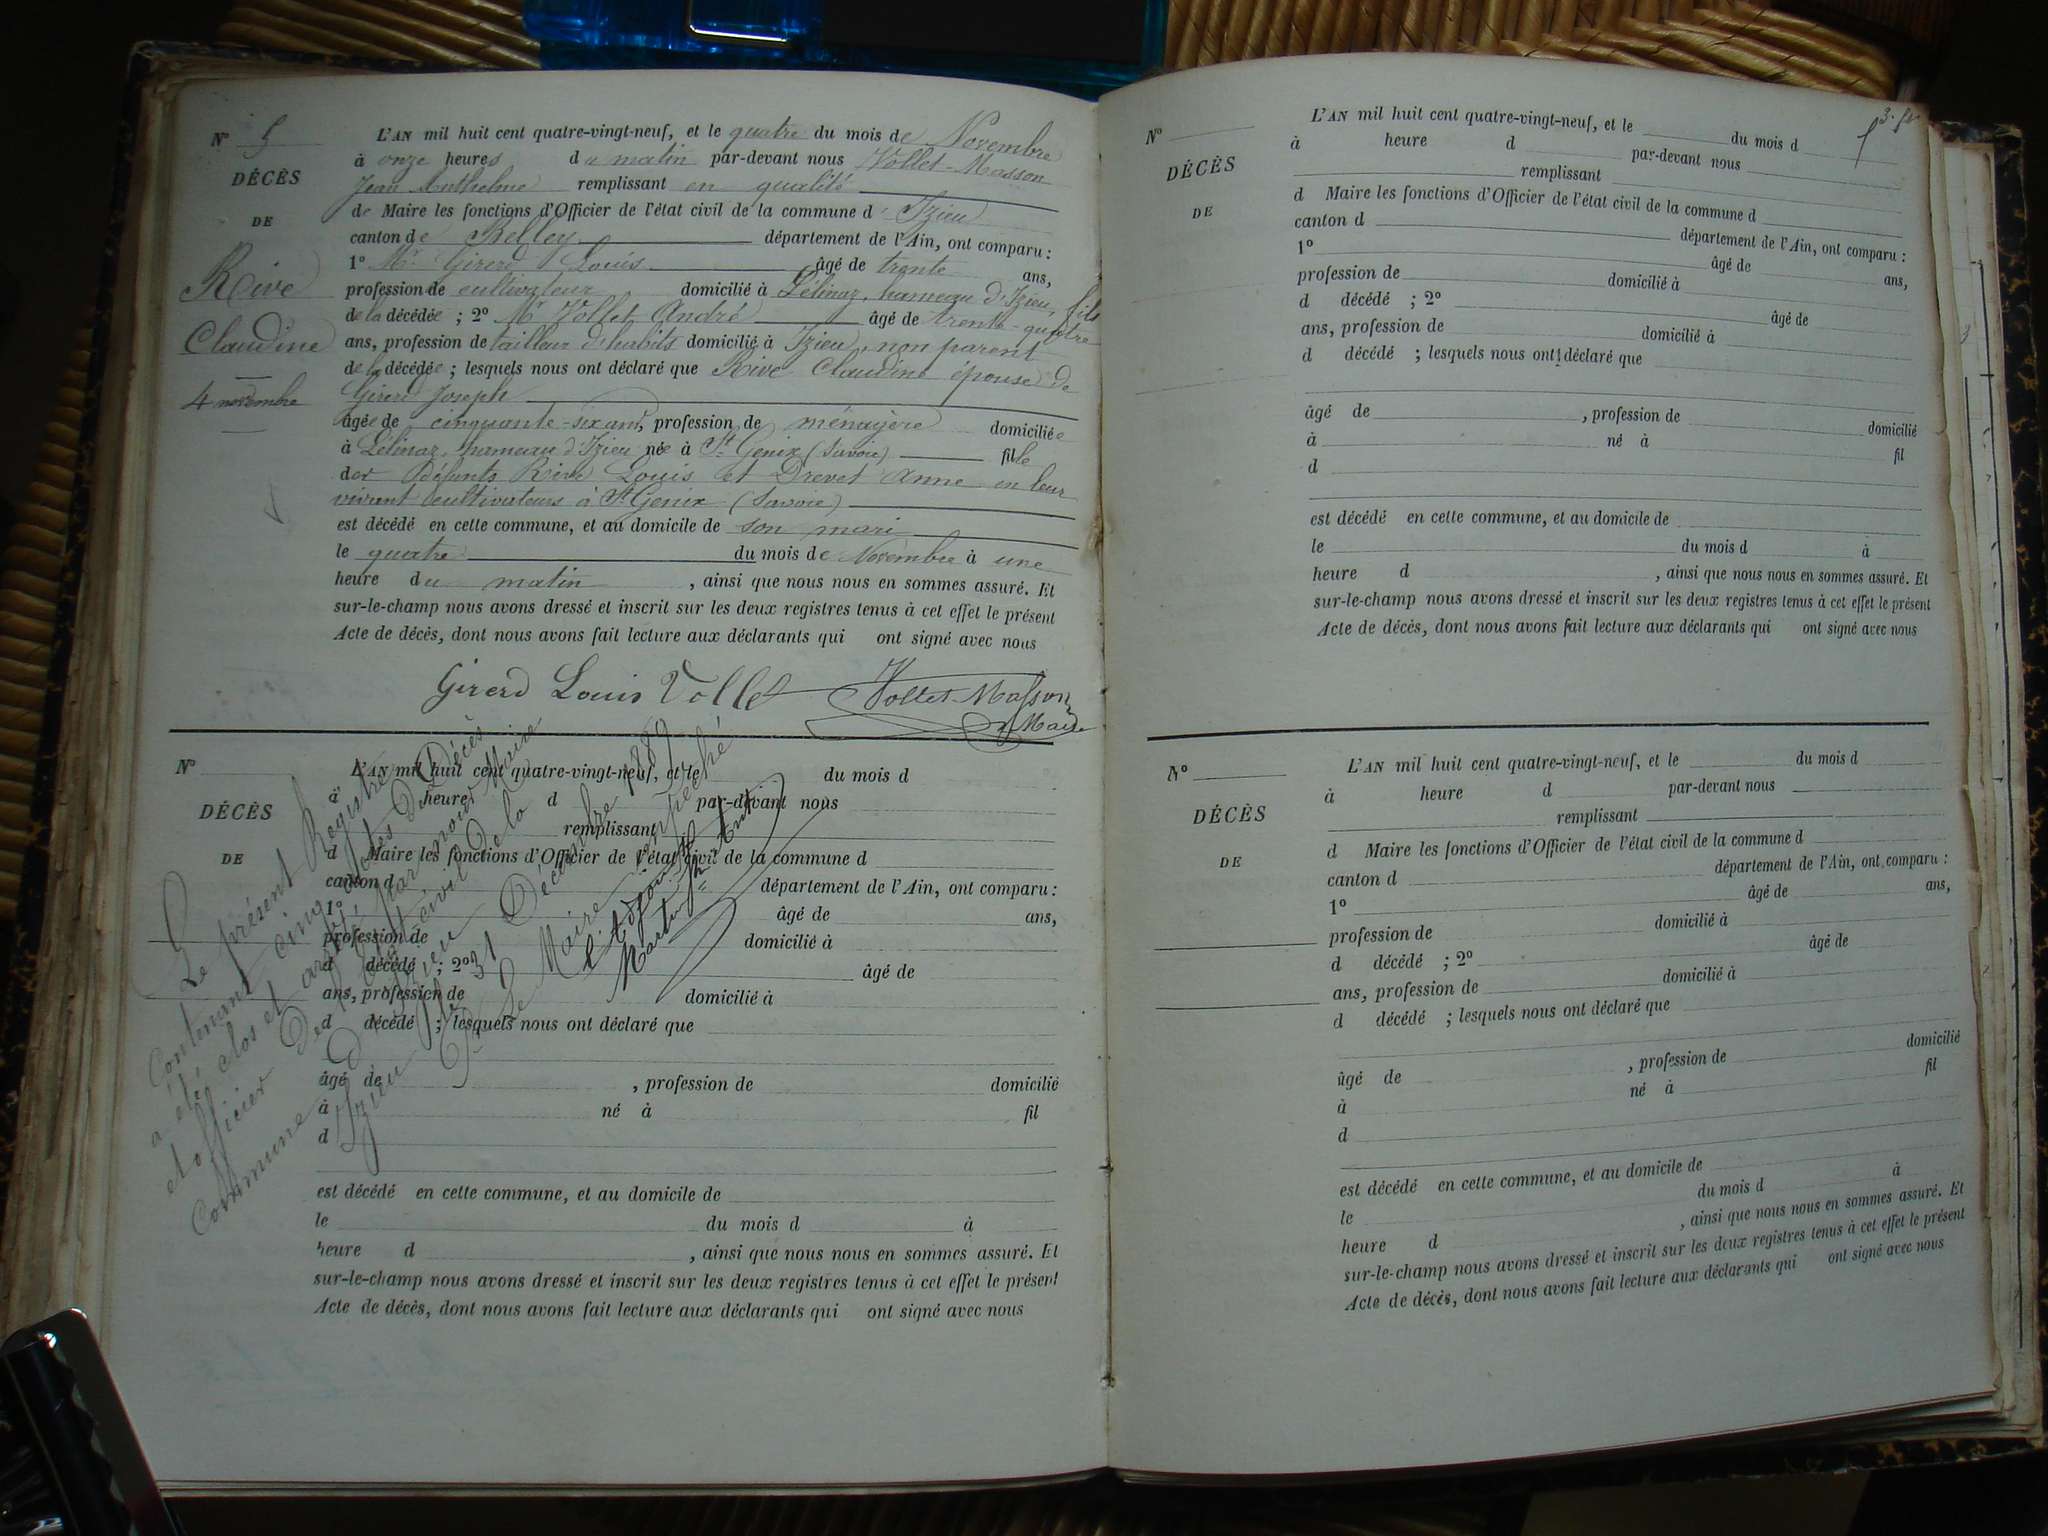 N° 5
DÉCÈS
DE
Rive
Claudine
4 novembre
L'AN mil huit cent quatre-vingt-neuf, et le quatre du mois de Novembre
à onze heures du matin par-devant nous Vollet-Masson
Jean Anthelme remplissant en qualité
de Maire les fonctions d'Officier de l'état civil de la commune d'Izieu
canton de Belley département de l'Ain, ont comparu :
1° Mr Girerd Louis âgé de trente ans,
profession de cultivateur domicilié à Lélinaz, hameau d'Izieu, fils
de la décédée ; 2° Mr Vollet André âgé de trente-quatre
ans, profession de tailleur d'habits domicilié à Izieu, non parent
de la décédée ; lesquels nous ont déclaré que Rive Claudine épouse de
Girerd Joseph
âgée de cinquante-six ans, profession de ménagère domiciliée
à Lélinaz, hameau d'Izieu née à St Genix (Savoie) fille
des défunts Rive Louis et Drevet Anne en leur
vivant cultivateurs à St Genix (Savoie)
est décédé en cette commune, et au domicile de son mari
le quatre du mois de Novembre à une
heure du matin , ainsi que nous nous en sommes assuré. Et
sur-le-champ nous avons dressé et inscrit sur les deux registres tenus à cet effet le présent
Acte de décès, dont nous avons fait lecture aux déclarants qui ont signé avec nous
Girerd Louis Vollet Vollet-Masson
Maire
N°
DÉCÈS
DE
L'AN mil huit cent quatre-vingt-neuf, et le du mois d
à heure d par-devant nous
remplissant
d Maire les fonctions d'Officier de l'état civil de la commune d
canton d département de l'Ain, ont comparu :
1° âgé de ans,
profession de domicilié à
d décédé ; 2° âgé de
ans, profession de domicilié à
d décédé ; lesquels nous ont déclaré que
âgé de , profession de domicilié
à né à fil
d
est décédé en cette commune, et au domicile de
le du mois d à
heure d , ainsi que nous nous en sommes assuré. Et
sur-le-champ nous avons dressé et inscrit sur les deux registres tenus à cet effet le présent
Acte de décès, dont nous avons fait lecture aux déclarants qui ont signé avec nous
Le présent Registre
Contenant cinq actes de Décès
a été clos et arrêté par nous Maire
et officier de l'état civil de la
Commune d'Izieu
Izieu le 31 Décembre 1889
Pr le Maire empêché
L'Adjoint
Martin
N°
DÉCÈS
DE
L'AN mil huit cent quatre-vingt-neuf, et le du mois d
à heure d par-devant nous
remplissant
d Maire les fonctions d'Officier de l'état civil de la commune d
canton d département de l'Ain, ont comparu :
1° âgé de ans,
profession de domicilié à
d décédé ; 2° âgé de
ans, profession de domicilié à
d décédé ; lesquels nous ont déclaré que
âgé de , profession de domicilié
à né à fil
d
est décédé en cette commune, et au domicile de
le du mois d à
heure d , ainsi que nous nous en sommes assuré. Et
sur-le-champ nous avons dressé et inscrit sur les deux registres tenus à cet effet le présent
Acte de décès, dont nous avons fait lecture aux déclarants qui ont signé avec nous
N°
DÉCÈS
DE
L'AN mil huit cent quatre-vingt-neuf, et le du mois d
à heure d par-devant nous
remplissant
d Maire les fonctions d'Officier de l'état civil de la commune d
canton d département de l'Ain, ont comparu :
1° âgé de ans,
profession de domicilié à
d décédé ; 2° âgé de
ans, profession de domicilié à
d décédé ; lesquels nous ont déclaré que
âgé de , profession de domicilié
à né à fil
d
est décédé en cette commune, et au domicile de
le du mois d à
heure d , ainsi que nous nous en sommes assuré. Et
sur-le-champ nous avons dressé et inscrit sur les deux registres tenus à cet effet le présent
Acte de décès, dont nous avons fait lecture aux déclarants qui ont signé avec nous